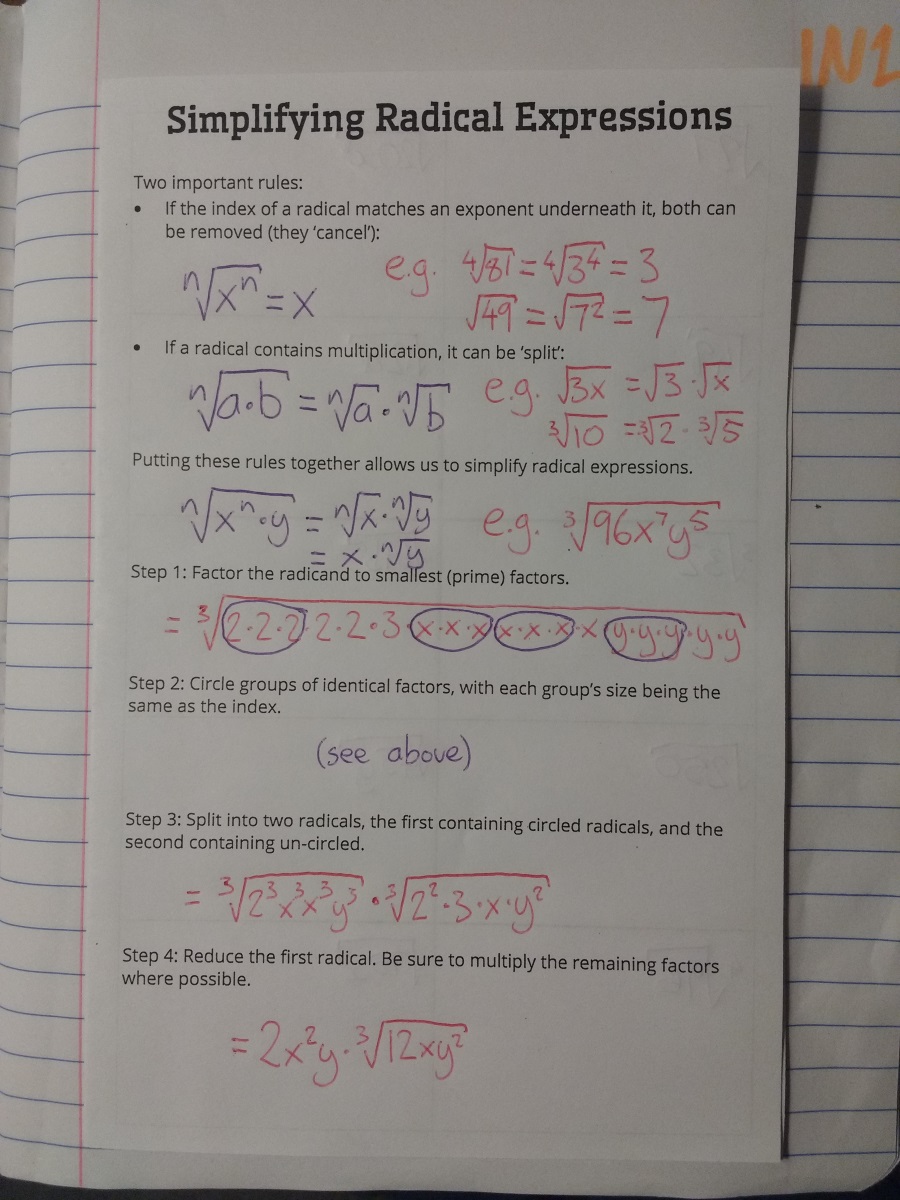 IN1
Simplifying Radical Expressions
Two important rules:
• If the index of a radical matches an exponent underneath it, both can
be removed (they ‘cancel’):
ⁿ√(xⁿ) = x e.g. ⁴√81 = ⁴√(3⁴) = 3
√49 = √(7²) = 7
• If a radical contains multiplication, it can be ‘split’:
ⁿ√(a·b) = ⁿ√a · ⁿ√b e.g. √(3x) = √3 · √x
³√10 = ³√2 · ³√5
Putting these rules together allows us to simplify radical expressions.
ⁿ√(xⁿ·y) = ⁿ√x · ⁿ√y e.g. ³√(96x⁷y⁵)
= x · ⁿ√y
Step 1: Factor the radicand to smallest (prime) factors.
= ³√(2·2·2·2·2·3·x·x·x·x·x·x·x·y·y·y·y·y)
Step 2: Circle groups of identical factors, with each group’s size being the
same as the index.
(see above)
Step 3: Split into two radicals, the first containing circled radicals, and the
second containing un-circled.
= ³√(2³x³x³y³) · ³√(2²·3·x·y²)
Step 4: Reduce the first radical. Be sure to multiply the remaining factors
where possible.
= 2x²y · ³√(12xy²)